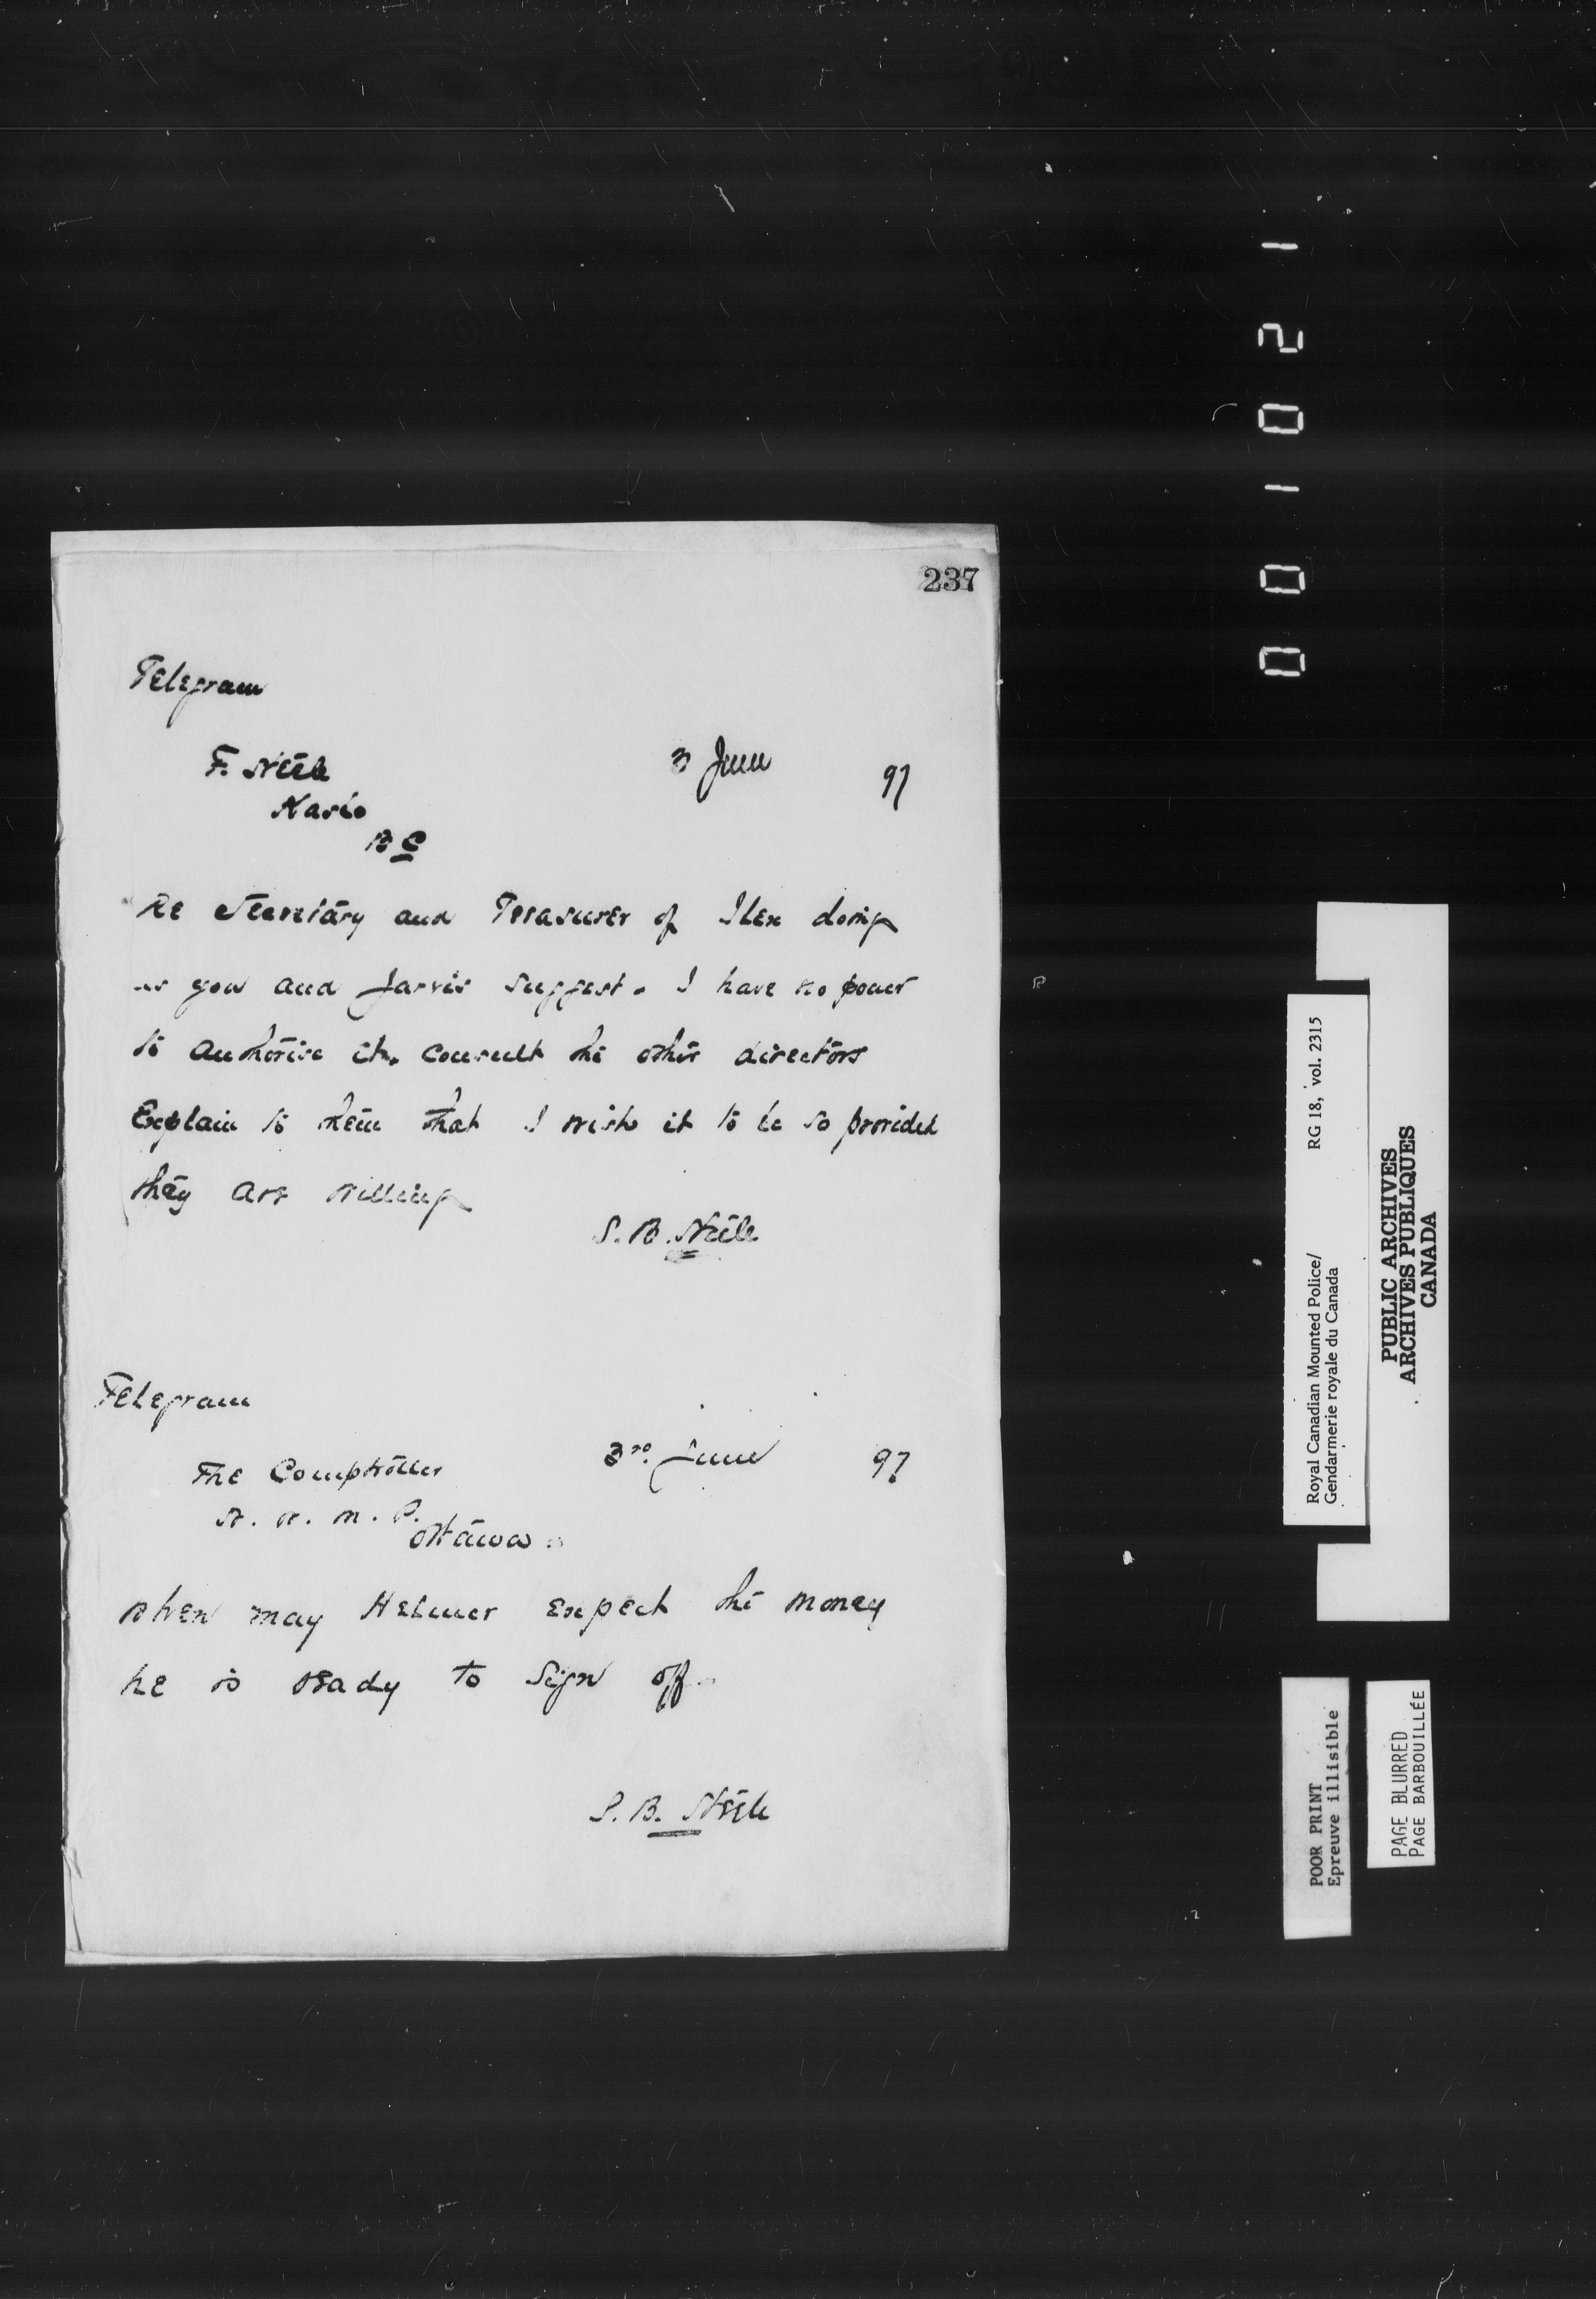 237
Telegram
F. Steele 3 June 97
Kaslo
B C
Re Secretary and Treasurer of Ilex doing
as you and Jarvis suggest. I have no power
to authorise it. Consult the other directors
Explain to them that I wish it to be so provided
they are willing
S. B. Steele
Telegram
The Comptroller 3rd June 97
N. W. M. P.
Ottawa
When may Helmer expect the money
he is ready to sign off
S. B. Steele
001021
Royal Canadian Mounted Police/ RG 18, vol. 2315
Gendarmerie royale du Canada
PUBLIC ARCHIVES
ARCHIVES PUBLIQUES
CANADA
POOR PRINT
Epreuve illisible
PAGE BLURRED
PAGE BARBOUILLÉE